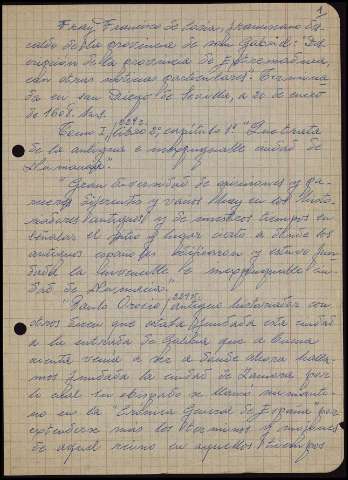 1
Fray Francisco de Coria, franciscano des-
calzo de la provincia de San Gabriel: "Des-
cripción de la provincia de Extremadura,
con otras noticias particulares". Termina
da en San Diego de Sevilla, a 20 de enero
de 1608. Ms.
229r.
Tomo I, libro 2º, capítulo 1º "Que trata
de la antigua e inexpugnable ciudad de
Numancia."
"Gran diversidad de opiniones y pa-
receres diferentes y varios hay en los histo-
riadores antiguos y de nuestros tiempos en
señalar el sitio y lugar cierto a donde los
antiguos españoles edificaron y estuvo fun
dada la invencible e inexpugnable ciu-
dad de Numancia."
"Paulo Orosio, antiguo historiador con
otros dicen que estaba fundada esta ciudad
a la entrada de Galicia que a buena
cuenta venía a ser a donde ahora halla-
mos fundada la ciudad de Zamora por
lo cual su obispado se llamó numanti-
no en la "Crónica General de España por
extenderse más los términos y mojones
de aquel reino en aquellos tiempos